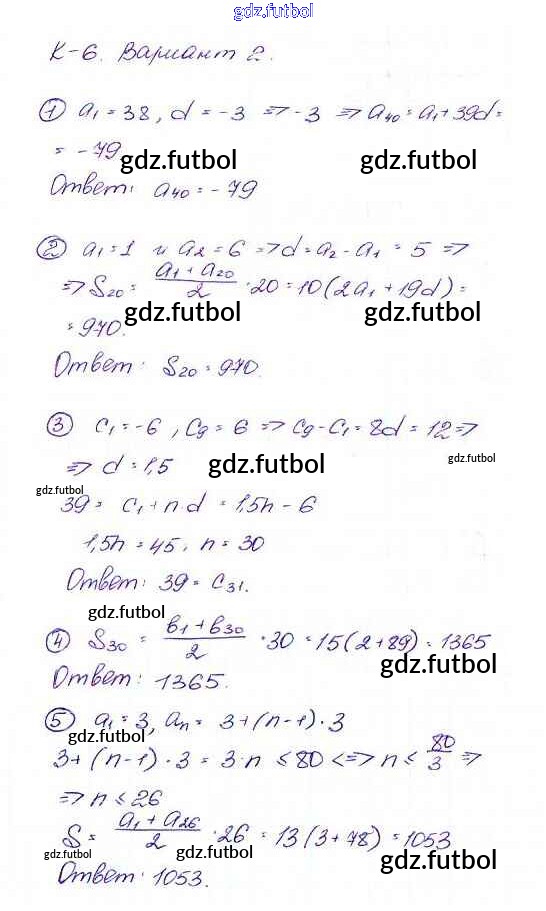 gdz.futbol
К-6. Вариант 2.
① a₁ = 38, d = -3 => -3 => a₄₀ = a₁ + 39d =
= -79
gdz.futbol gdz.futbol
Ответ: a₄₀ = -79
② a₁ = 1 и a₂ = 6 => d = a₂ - a₁ = 5 =>
=> S₂₀ = (a₁ + a₂₀)/2 · 20 = 10(2a₁ + 19d) =
gdz.futbol gdz.futbol
= 970.
Ответ: S₂₀ = 970.
③ c₁ = -6, c₉ = 6 => c₉ - c₁ = 8d = 12 =>
=> d = 1,5
gdz.futbol gdz.futbol
gdz.futbol
39 = c₁ + n d = 1,5n - 6
1,5n = 45, n = 30
Ответ: 39 = c₃₁.
gdz.futbol
④ S₃₀ = (b₁ + b₃₀)/2 · 30 = 15(2 + 89) = 1365
gdz.futbol
Ответ: 1365.
⑤ a₁ = 3, aₙ = 3 + (n-1) · 3
gdz.futbol
3 + (n-1) · 3 = 3·n ≤ 80 <=> n ≤ 80/3 =>
=> n ≤ 26
S = (a₁ + a₂₆)/2 · 26 = 13(3 + 78) = 1053
gdz.futbol gdz.futbol gdz.futbol
Ответ: 1053.